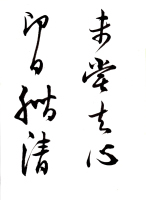 未嘗去心
即日
清